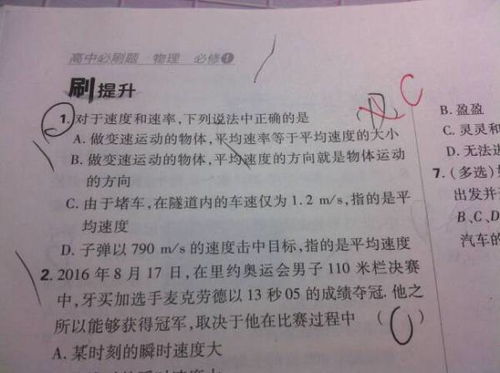 高中必刷题 物理 必修1
刷提升
1. 对于速度和速率,下列说法中正确的是
C
A. 做变速运动的物体,平均速率等于平均速度的大小
B. 做变速运动的物体,平均速度的方向就是物体运动
的方向
C. 由于堵车,在隧道内的车速仅为 1.2 m/s,指的是平
均速度
D. 子弹以 790 m/s 的速度击中目标,指的是平均速度
2. 2016 年 8 月 17 日,在里约奥运会男子 110 米栏决赛
中,牙买加选手麦克劳德以 13 秒 05 的成绩夺冠. 他之
所以能够获得冠军,取决于他在比赛过程中 ( )
A. 某时刻的瞬时速度大
B. 盈盈
C. 灵灵和
D. 无法
7. (多选)
出发并
B、C、D
汽车的